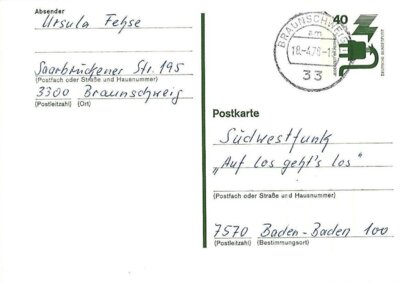 Absender
Ursula Fehse
Saarbrückener Str. 195
(Postfach oder Straße und Hausnummer)
3300 Braunschweig
(Postleitzahl) (Ort)
BRAUNSCHWEIG
am
18.-4.79.-1
33
40
DEUTSCHE BUNDESPOST
Postkarte
Südwestfunk
„Auf los geht's los"
(Postfach oder Straße und Hausnummer)
7570 Baden-Baden 100
(Postleitzahl) (Bestimmungsort)